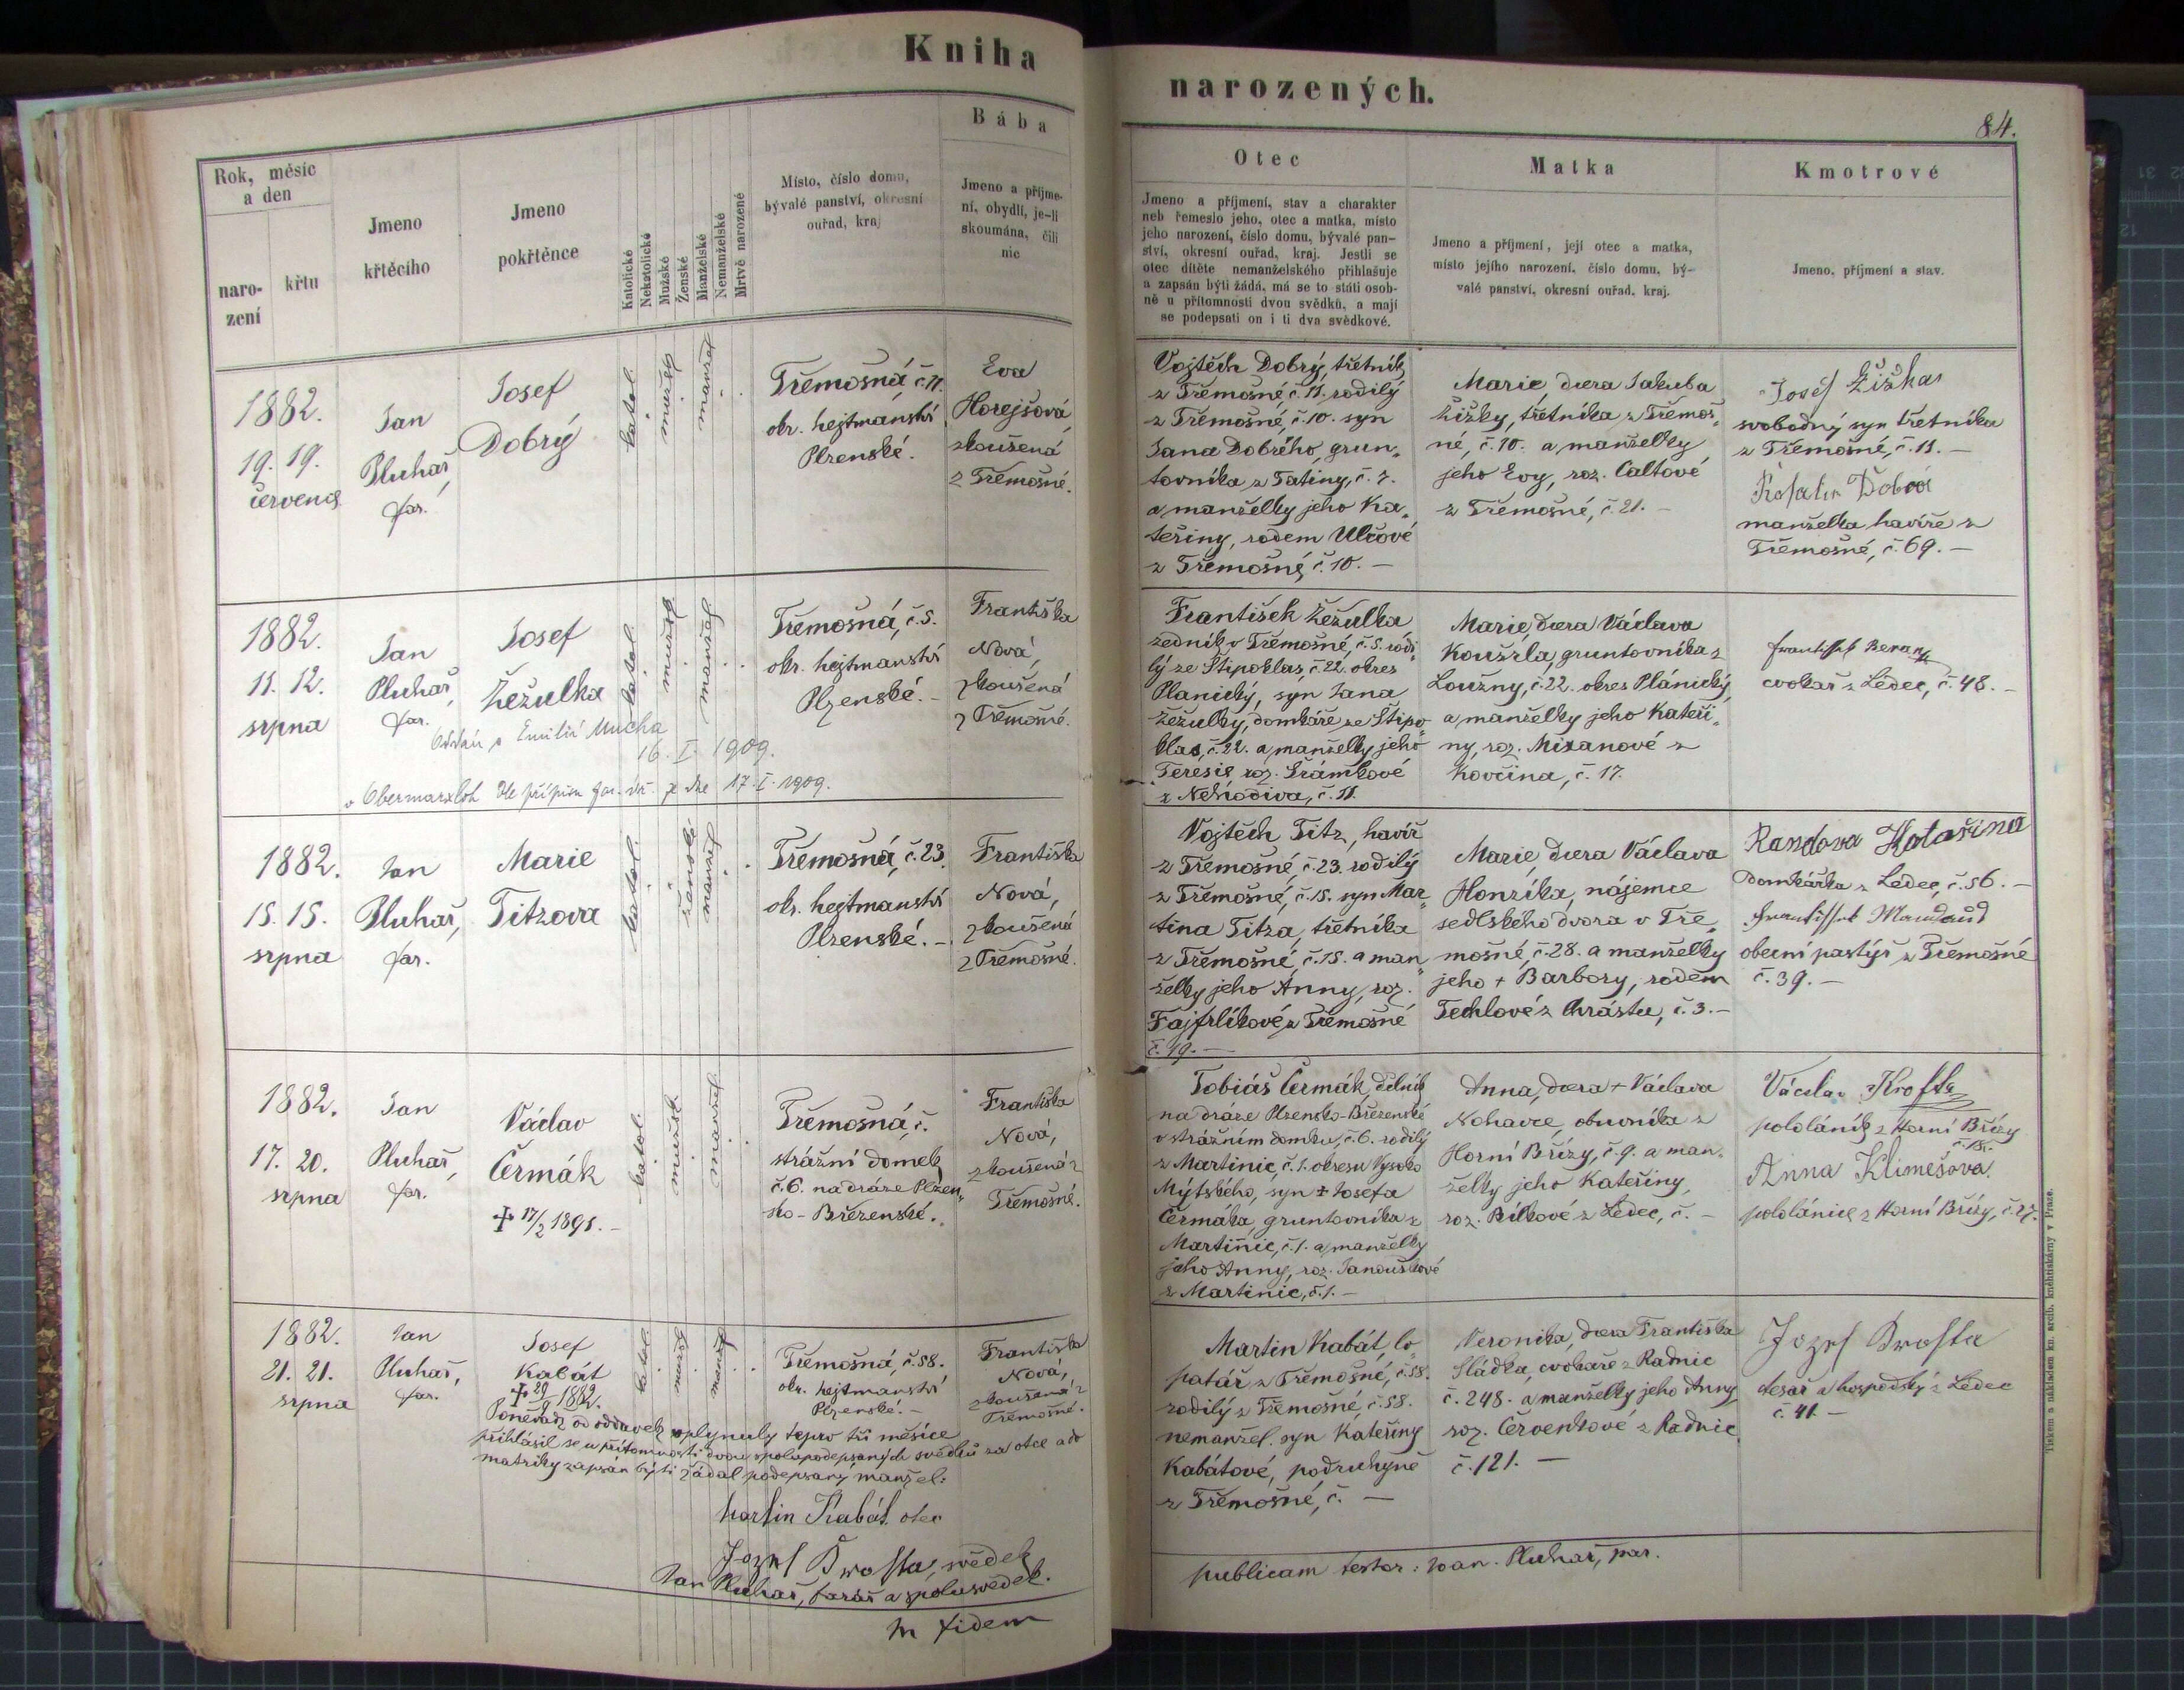 Kniha
Rok, měsíc
a den
naro-
zení
křtu
Jmeno
křtěcího
Jmeno
pokřtěnce
Katolické
Nekatolické
Mužské
Ženské
Manželské
Nemanželské
Mrtvě narozené
Místo, číslo domu,
bývalé panství, okresní
ouřad, kraj
Bába
Jmeno a příjme-
ní, obydlí, je-li
skoumána, čili
nic
1882.
19. 19.
července
Jan
Pluhař,
far.
Josef
Dobrý
katol.
mužsk.
manžel.
Třemošná, č. 11.
okr. hejtmanství
Plzenské.
Eva
Horejšová,
zkoušená
z Třemošné.
1882.
11. 12.
srpna
Jan
Pluhař,
far.
Josef
Žežulka
Oddán s Emilií Mucha
16. I. 1909.
v Obermarxloh dle přípisu far. úř. ze dne 17. I. 1909.
katol.
mužsk.
manžel.
Třemošná, č. 5.
okr. hejtmanství
Plzenské. -
Františka
Nová,
zkoušená
z Třemošné.
1882.
15. 15.
srpna
Jan
Pluhař,
far.
Marie
Titzova
katol.
ženské
manžel.
Třemošná, č. 23.
okr. hejtmanství
Plzenské. -
Františka
Nová,
zkoušená
z Třemošné.
1882.
17. 20.
srpna
Jan
Pluhař,
far.
Václav
Čermák
+ 17/2 1891. -
katol.
mužsk.
manžel.
Třemošná, č.
strážní domek
č. 6. na dráze Plzen„
sko - Březenské.
Františka
Nová,
zkoušená z
Třemošné.
1882.
21. 21.
srpna
Jan
Pluhař,
far.
Josef
Kabát
+ 29/9 1882.
katol.
mužsk.
manžel.
Třemošná, č. 58.
okr. hejtmanství
Plzenské. -
Františka
Nová,
zkoušená z
Třemošné.
Poněvadž od oddavek uplynuly teprv tři měsíce
přihlásil se u přítomnosti dvou spolupodepsaných svědků za otce a do
matriky zapsán býti žádal podepsaný manžel:
Martin Kabát otec
Jozef Kwosta, svědek
Jan Pluhař, farář a spolusvědek.
In fidem
narozených.
84.
Otec
Jmeno a příjmení, stav a charakter
neb řemeslo jeho, otec a matka, místo
jeho narození, číslo domu, bývalé pan-
ství, okresní ouřad, kraj. Jestli se
otec dítěte nemanželského přihlašuje
a zapsán býti žádá, má se to státi osob-
ně u přítomnosti dvou svědků, a mají
se podepsati on i ti dva svědkové.
Matka
Jmeno a příjmení, její otec a matka,
místo jejího narození, číslo domu, bý-
valé panství, okresní ouřad, kraj.
Kmotrové
Jmeno, příjmení a stav.
Vojtěch Dobrý, třetník
z Třemošné č. 11. rodilý
z Třemošné, č. 10. syn
Jana Dobrého, grun„
tovníka z Tatiny, č. 7.
a manželky jeho Ka„
teřiny, rodem Ulčové
z Třemošné, č. 10. -
Marie, dcera Jakuba
Žižky, třetníka z Třemoš„
né, č. 10. a manželky
jeho Evy, roz. Caltové
z Třemošné, č. 21. -
Josef Žižka
svobodný syn třetníka
z Třemošné, č. 11. -
Rosalie Dobrá
manželka havíře z
Třemošné, č. 69. -
František Žežulka
zedník v Třemošné, č. 5. rodi„
lý ze Štipoklas, č. 22. okres
Planický, syn Jana
Žežulky, domkáře ze Štipo„
klas, č. 22. a manželky jeho
Teresie roz. Šrámkové
z Nehodiva, č. 11.
Marie, dcera Václava
Kouřzla, gruntovníka z
Loužny, č. 22. okres Plánický,
a manželky jeho Kateři„
ny, roz. Mixanové z
Kovčína, č. 17.
František Beran
cvokař z Ledec, č. 48. -
Vojtěch Titz, havíř
z Třemošné, č. 23. rodilý
z Třemošné, č. 15. syn Mar„
tina Titza, třetníka
z Třemošné, č. 15. a man„
želky jeho Anny, roz.
Fajfrlíkové z Třemošné
č. 19. -
Marie, dcera Václava
Honzíka, nájemce
sedlského dvora v Tře„
mošné, č. 28. a manželky
jeho + Barbory, rodem
Techlové z Chrástu, č. 3. -
Randova Katařina
domkářka z Ledec, č. 56. -
obecní pastýř z Třemošné
č. 39. -
Tobiáš Čermák, dělník
na dráze Plzensko-Březenské
v strážním domku, č. 6. rodilý
z Martinic, č. 1. okresu Vysoko
Mýtského, syn + Josefa
Čermáka, gruntovníka z
Martinic, č. 1. a manželky
jeho Anny, roz. Janouškové
z Martinic, č. 1. -
Anna, dcera + Václava
Nohavce, obuvníka z
Horní Břízy, č. 9. a man„
želky jeho Kateřiny,
roz. Bílkové z Ledec, č. -
Václav Krofta
pololáník z Horní Břízy
č. 18.
Anna Klimešova
pololánice z Horní Břízy, č. 27.
Martin Kabát, lo„
patář z Třemošné, č. 58.
rodilý z Třemošné, č. 58.
nemanžel. syn Kateřiny
Kabátové, podruhyně
z Třemošné, č. -
Veronika, dcera Františka
Sládka, cvokaře z Radnic
č. 248. a manželky jeho Anny
roz. Červenkové z Radnic
č. 121. -
Jozef Kwosta
tesař a hospodský z Ledec
č. 41. -
publicam testor: Joan. Pluhař, par.
Tiskem a nákladem kn. arcib. knihtiskárny v Praze.